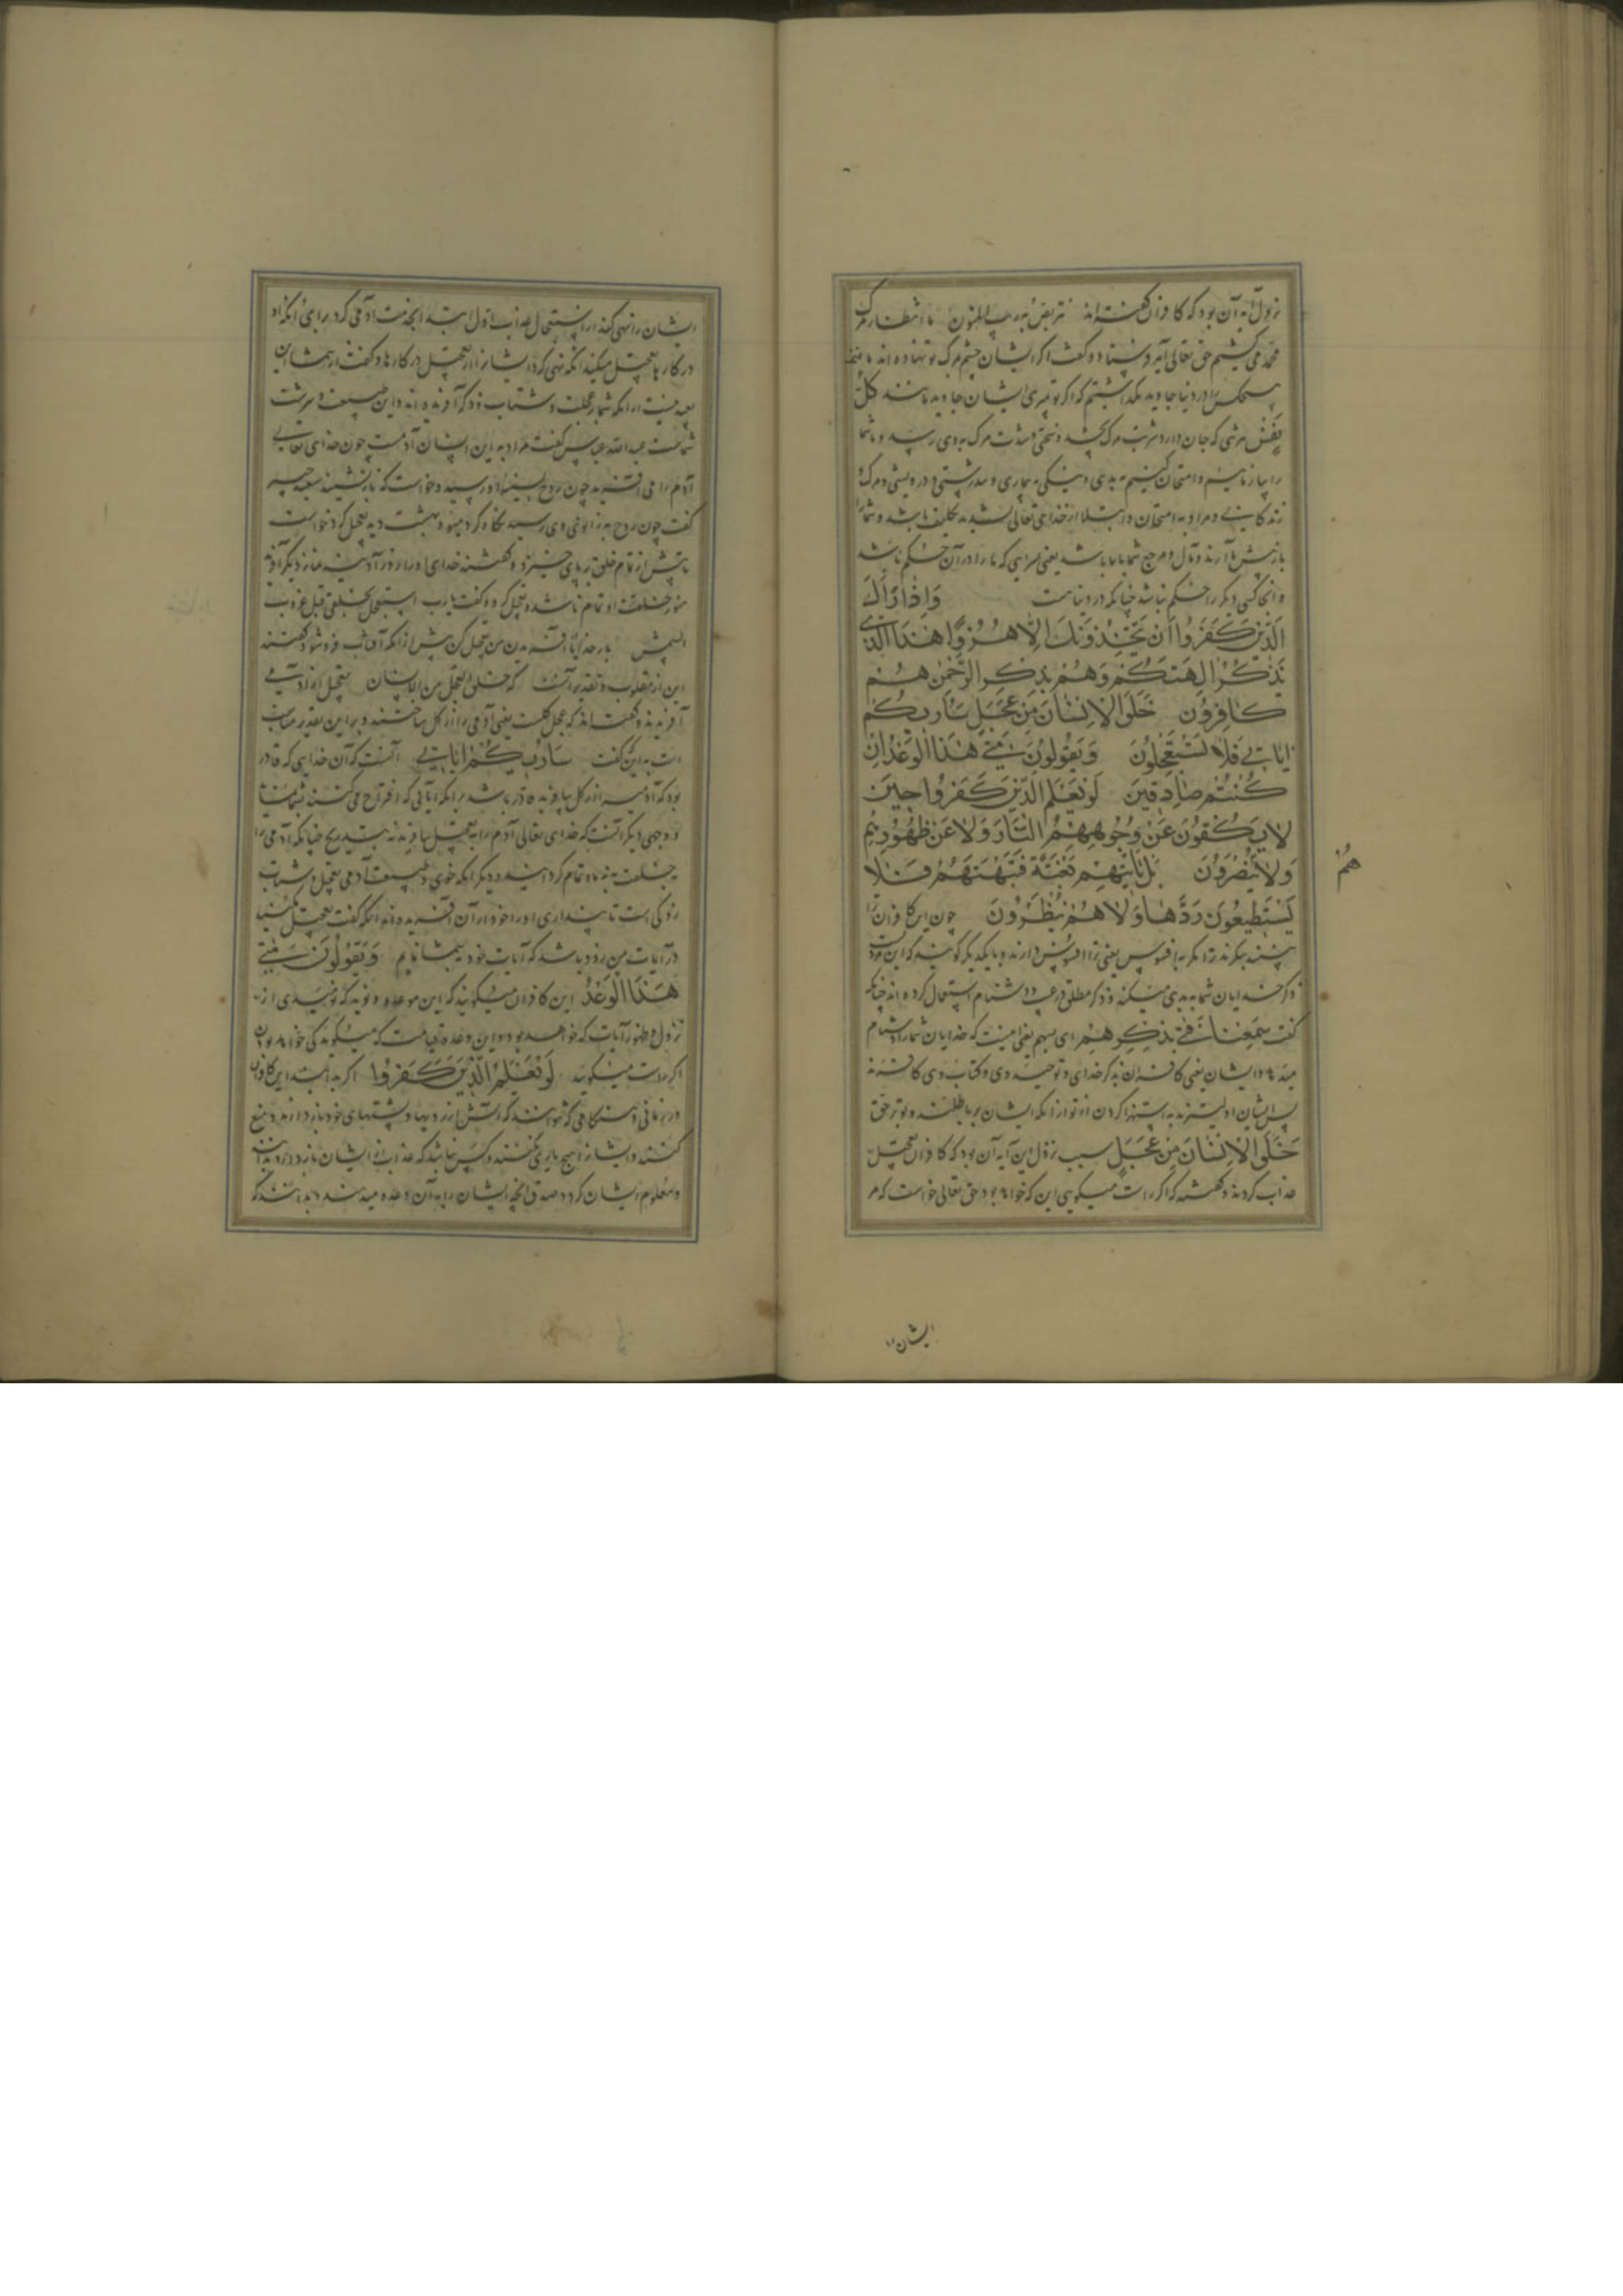 نزول آیه آن بود که کافران گفته‌اند نتربص به ریب المنون ما انتظار مرگ
محمد می کشیم حق تعالی آیه فرستاد و گفت اگر ایشان چشم مرگ تو نهاده اند ما هیچ
کس را در دنیا جاوید نگذاشتیم که اگر تو بمیری ایشان جاوید مانند کُلُّ
نَفسٍ هرشی که جان دارد شربت مرگ بچشد و سختی و شدت مرگ به وی رسد و ما شما
را بیازماییم و امتحان کنیم به بدی و نیکی به بیماری و تندرستی و درویشی و مرگ
زندگانی و مراد به امتحان و ابتلا از خدای تعالی تشدید تکلیف باشد و شما را
بازپس ما آرند و مآل و مرجع شما با ما باشد یعنی سرایی که ما را در آن حکم باشد
و آنجا کسی دیگر را حکم نباشد چنانکه در دنیاست وَاِذَا رَاٰكَ
الَّذِينَ كَفَرُوا اَن يَتَّخِذُونَكَ اِلَّا هُزُوًا اَهٰذَا الَّذِی
يَذْكُرُ اٰلِهَتَكُمْ وَهُمْ بِذِكْرِ الرَّحْمٰنِ هُمْ
كَافِرُونَ خُلِقَ الْاِنْسَانُ مِنْ عَجَلٍ سَاُرِيكُمْ
اٰيَاتِي فَلَا تَسْتَعْجِلُونَ وَيَقُولُونَ مَتٰى هٰذَا الْوَعْدُ اِنْ
كُنْتُمْ صَادِقِينَ لَوْ يَعْلَمُ الَّذِينَ كَفَرُوا حِينَ
لَا يَكُفُّونَ عَنْ وُجُوهِهِمُ النَّارَ وَلَا عَنْ ظُهُورِهِمْ
وَلَا يُنْصَرُونَ بَلْ تَاْتِيهِمْ بَغْتَةً فَتَبْهَتُهُمْ فَلَا
هُمْ
يَسْتَطِيعُونَ رَدَّهَا وَلَا هُمْ يُنْظَرُونَ چون این کافران ترا
بینند نگیرند ترا مگر به افسوس یعنی ترا افسوس دارند و با یکدیگر گویند که این مرد
ذکر خدایان شما به بدی میکند و ذکر مطلق در عیب و دشنام استعمال کرده اند چنانکه
گفت سَمِعْنَا فَتًى يَذْكُرُهُمْ ای یسبهم یعنی اینست که خدایان شما را دشنام
میدهد و ایشان یعنی کافران بذکر خدای و توحید وی و کتاب وی کافرند
پس ایشان اولیترند به استهزا کردن از تو از آنکه ایشان بر باطلند و تو بر حق
خُلِقَ الْاِنْسَانُ مِنْ عَجَلٍ سبب نزول این آیه آن بود که کافران تعجیل
عذاب کردند و گفتند که اگر راست میگویی این که خواهد بود حق تعالی خواست که مر
ایشان را
ایشان را نهی کند از استعجال عذاب اول ابتدا بمذمت آدمی کرد برای آنکه او
در کارها تعجیل میکند آنگه نهی کرد ایشان را از تعجیل در کارها و گفت از شما این
بعید نیست از آنکه شما بعجلت و شتاب زدگی آفریده اند و این طبیعت و سرشت
شماست عبدالله عباس گفت مراد به این انسان آدمست چون خدای تعالی
آدم را می آفرید چون روح بسینه او رسید خواست که باز نشیند سعید جبیر
گفت چون روح به زانوی وی رسید نگاه کرد میوه بهشت دید تعجیل کرد خواست
تا پیش از تمام خلق بر پای خیزد و گفتند خدای او را روز آدینه نماز دیگر آفرید
هنوز خلقت او تمام ناشده تعجیل کرد و گفت یا رب استعجل بخلقی قبل غروب
الشمس بار خدایا آفریدن من تعجیل کن پیش از آنکه آفتاب فرو شود و گفتند
این از مقلوبست و تقدیر آنست که خلق العجل من الانسان تعجیل از آدمی
آفریدند و گفته اند که عجل گلست یعنی آدمی را از گل ساختند و براین تقدیر مناسب
است به این گفت سَاُرِيكُمْ اٰيَاتِي آنست که آن خدایی که قادر
بود که آدم از گل بیافریند قادر باشد بر آنکه آیاتی که اقتراح می کنند بنماید
و وجهی دیگر آنست که خدای تعالی آدم را به تعجیل بیافرید نه بتدریج چنانکه آدمی را
خلقت به نه ماه تمام گرداند و دیگر آنکه خوی و طبیعت آدمی تعجیل و شتاب
زدگی است تا پنداری او را خود از آن آفریده اند آنگه گفت تعجیل مکنید
در آیات من زود باشد که آیات خود به شما نمایم وَيَقُولُونَ مَتٰى
هٰذَا الْوَعْدُ این کافران میگویند که این موعده و نوید که تو میدهی از
نزول و ظهور آیات که خواهد بود و این وعده قیامت که میگویند کی خواهد بود
اگر راست میگویید لَوْ يَعْلَمُ الَّذِينَ كَفَرُوا اگر بدانند این کافران
در زمانی و هنگامی که نتوانند که آتش از رویها و پشتهای خود باز دارند و منع
کنند و ایشان را هیچ یاری نکنند و کس نباشد که عذاب از ایشان باز دارد بدانند
و معلوم ایشان گردد صدق آنچه ایشان را به آن وعده میدهند و بدانند که